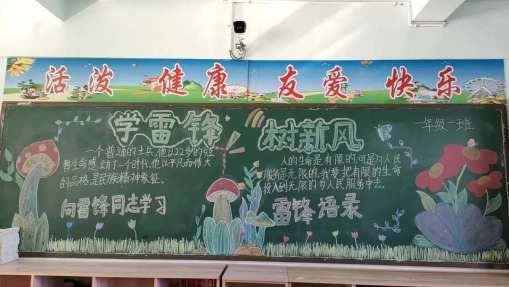 活泼 健康 友爱 快乐
学雷锋 树新风
一年级一班
一个普通的士兵,他以22岁的短
暂生命感动了一个时代,他以平凡而伟大
的品格是民族精神象征。
向雷锋同志学习
人的生命是有限的,可是为人民
服务是无限的,我要把有限的生命
投入到无限的为人民服务中去。
雷锋语录